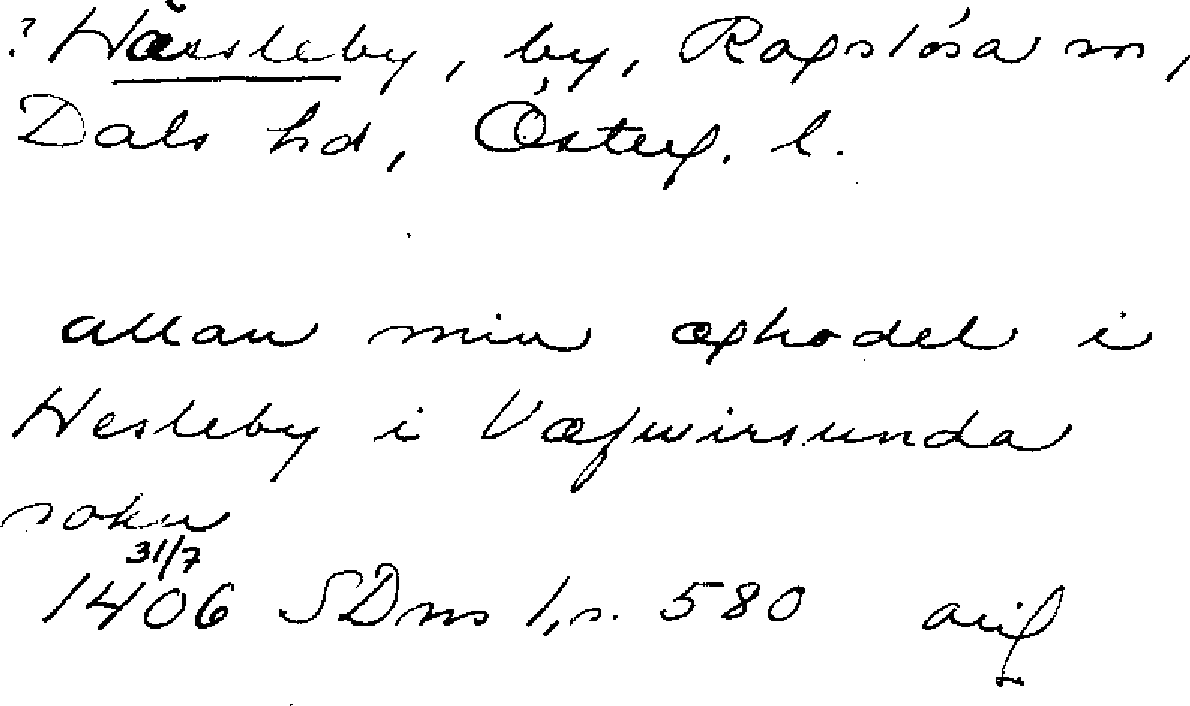 ? Hårsleby, by, Rogslösa sn,
Dals hd, Österg. l.
allan min æghodel i
Hesleby i Væfwirsunda
sokn
31/7
1406 SDns 1, s. 580